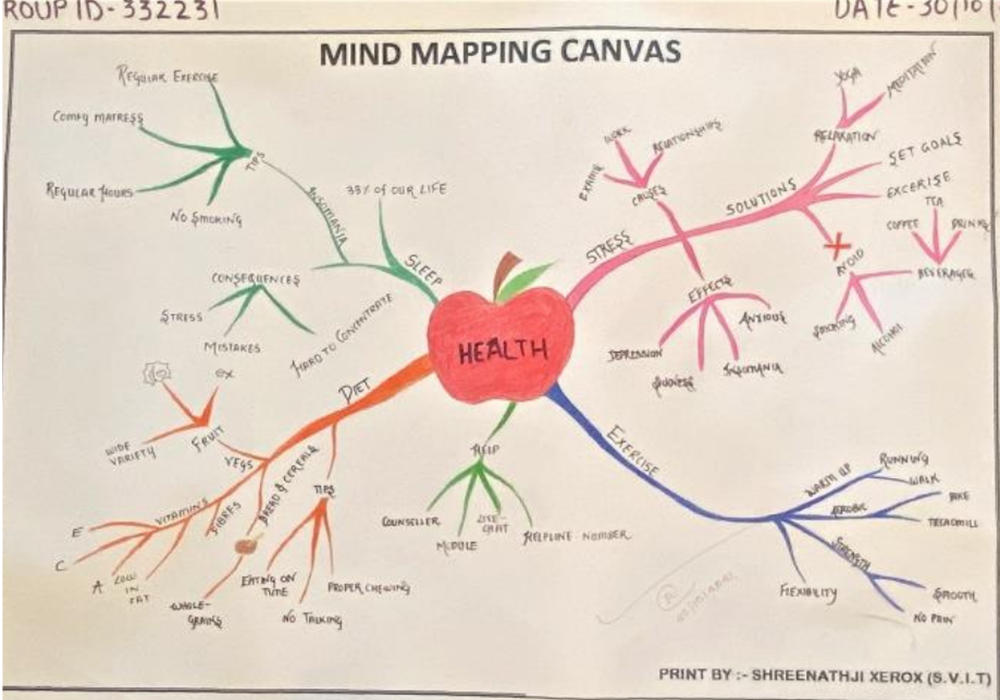 ROUP ID - 332231
DATE - 30/10/
MIND MAPPING CANVAS
HEALTH
SLEEP
33% OF OUR LIFE
INSOMANIA
TIPS
REGULAR EXERCISE
COMFY MATRESS
REGULAR HOURS
NO SMOKING
CONSEQUENCES
STRESS
MISTAKES
HARD TO CONCENTRATE
STRESS
CAUSES
EXAMS
WORK
RELATIONSHIPS
EFFECTS
DEPRESSION
INSOMANIA
ANXIOUS
SOLUTIONS
RELAXATION
YOGA
MEDITATION
SET GOALS
EXCERISE
AVOID
SMOKING
ALCOHOL
BEVERAGES
COFFEE
TEA
DRINKS
DIET
VEGS
FRUIT
WIDE
VARIETY
ex
VITAMINS
E
C
A
LOW
IN
FAT
FIBRES
BREAD & CEREALS
WHOLE-
GRAINS
TIPS
EATING ON
TIME
NO TALKING
PROPER CHEWING
HELP
COUNSELLER
MODULE
LIVE-
CHAT
HELPLINE NUMBER
EXERCISE
WARM UP
RUNNING
WALK
AEROBIC
BIKE
TREADMILL
STRENGTH
SMOOTH
NO PAIN
FLEXIBILITY
PRINT BY :- SHREENATHJI XEROX (S.V.I.T)